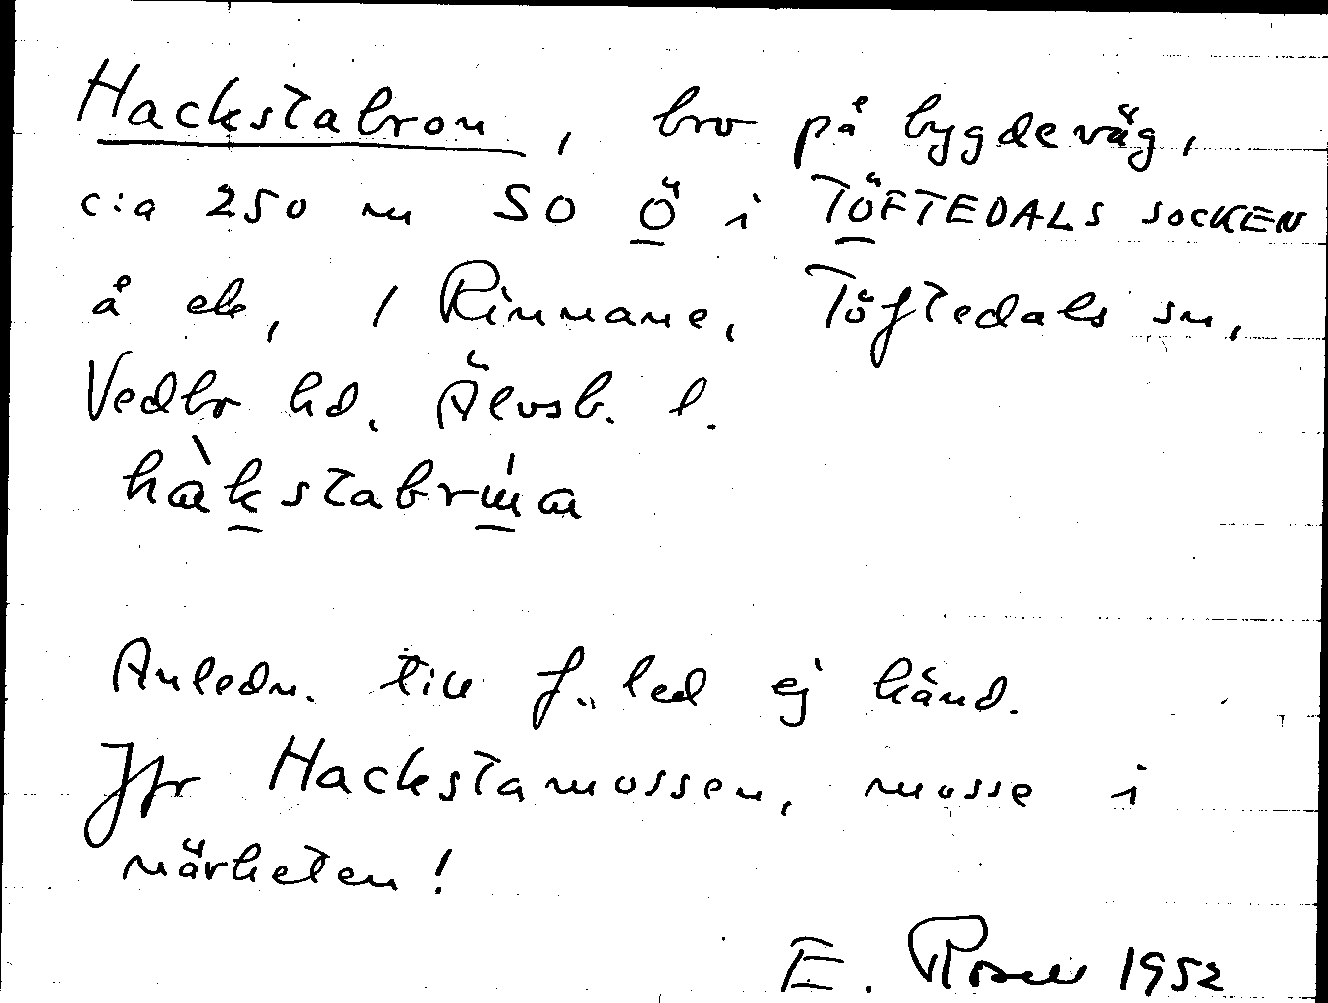 Hackstabron, bro på bygdeväg,
c:a 250 m SO Ö i TÖFTEDALS SOCKEN
å ek, 1 Rinnane, Töftedals sn,
Vedbo hd. Älvsb. l.
Anledn. till f.. led ej känd.
Jfr Hackstamossen, mosse i
närheten!
E. Rosell 1952